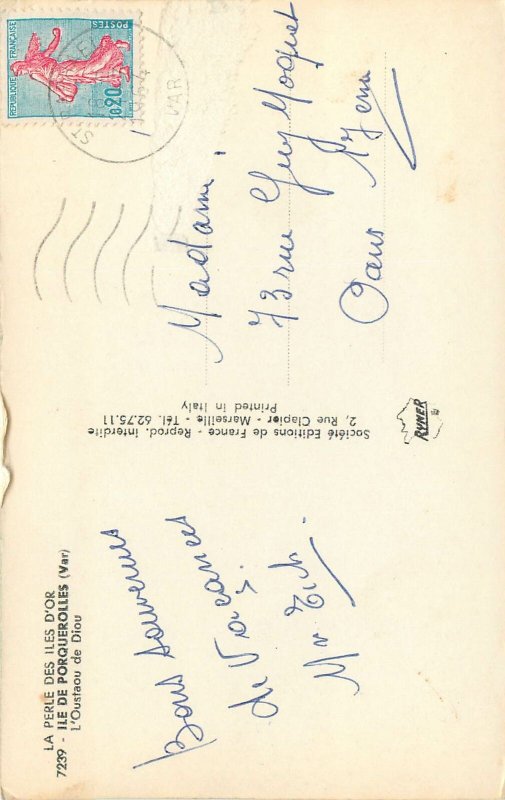 LA PERLE DES ILES D'OR
7239 - ILE DE PORQUEROLLES (Var)
L'Oustaou de Diou
Bons souvenirs
de Vacances.
Mr
Société Editions de France - Reprod. interdite
2, Rue Clapier - Marseille - Tél. 62.75.11
Printed in Italy
RYNER
REPUBLIQUE FRANÇAISE
POSTES
0,20
VAR
Madame
73 rue Guy Moquet
Paris